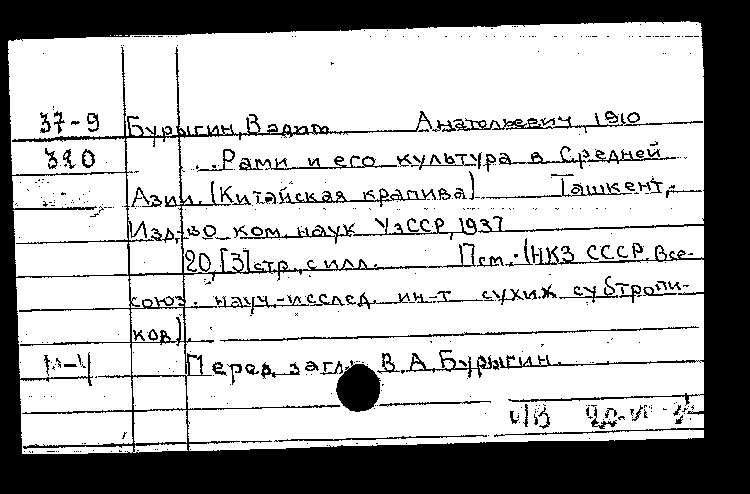 37-9 Бурыгин, Вадим Анатольевич, 1910
320 ..Рами и его культура в Средней
Азии. (Китайская крапива) Ташкент,
Изд-во ком. наук УзССР, 1937
20, [3] стр., с илл. (НКЗ СССР. Все-
союз. науч.-исслед. ин-т сухих субтропи-
ков).
Перед загл: В. А. Бурыгин.